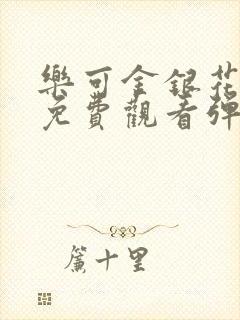 樂可金銀花
免費觀看彈
簾十里